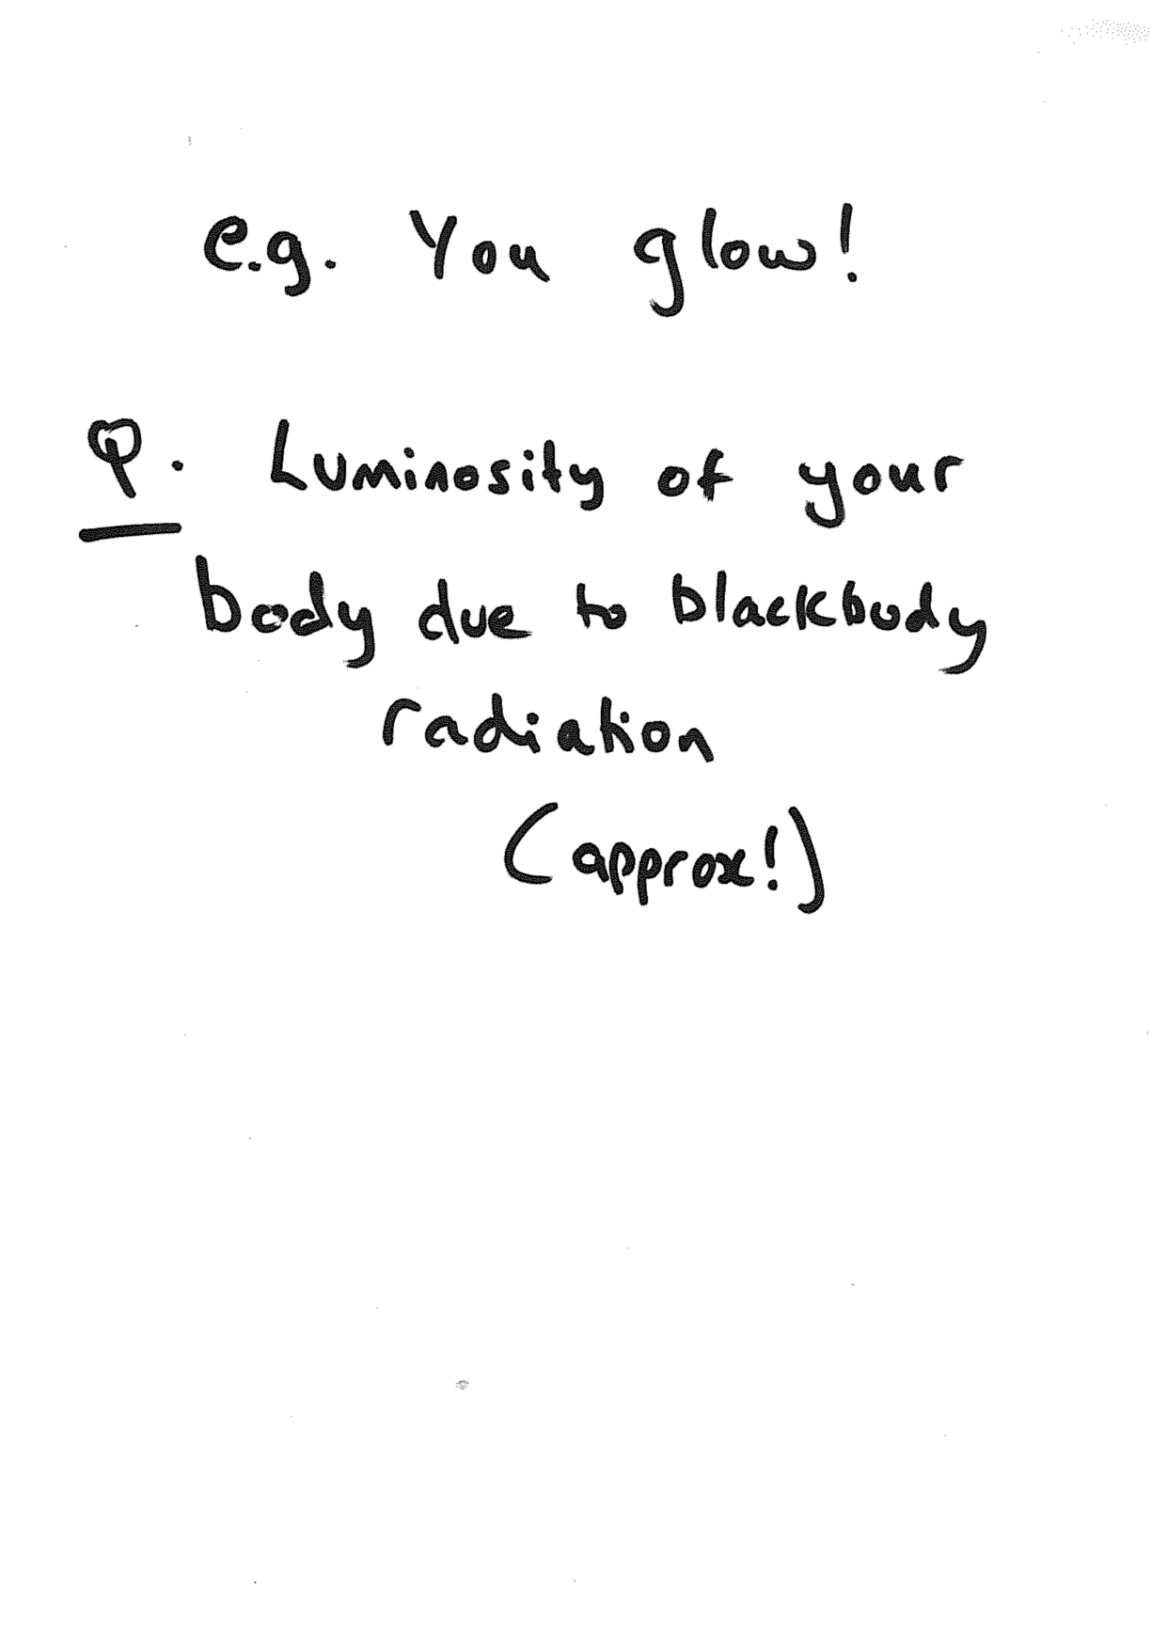 e.g. You glow!
Q. Luminosity of your
body due to blackbody
radiation
(approx!)